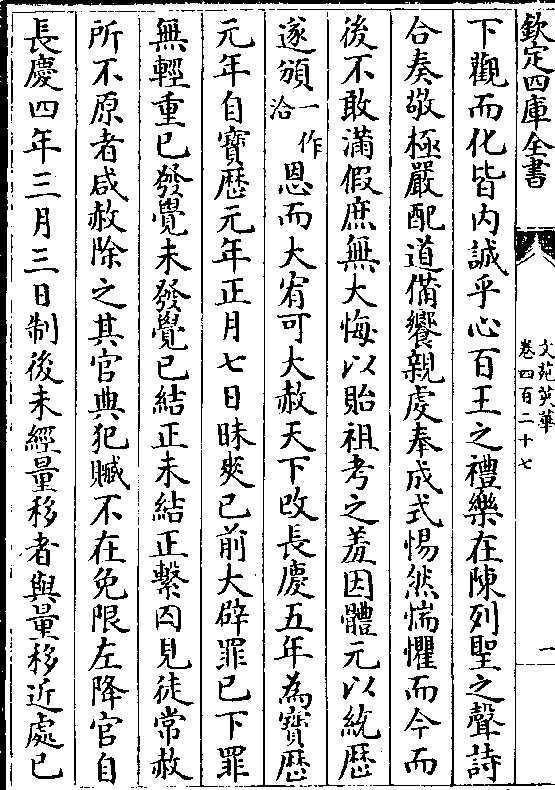 欽定四庫全書
文苑英華
卷四百二十七
一
下觀而化皆内誠乎心百王之禮樂在陳列聖之聲詩
合奏敬極嚴配道備饗親處奉成式惕然惴懼而今而
後不敢滿假庶無大悔以貽祖考之羞因體元以統歴
遂頒一作洽恩而大宥可大赦天下改長慶五年為寳歴
元年自寳歴元年正月七日昧爽已前大辟罪已下罪
無輕重已發覺未發覺已結正未結正繫囚見徒常赦
所不原者咸赦除之其官典犯贓不在免限左降官自
長慶四年三月三日制後未經量移者與量移近處已